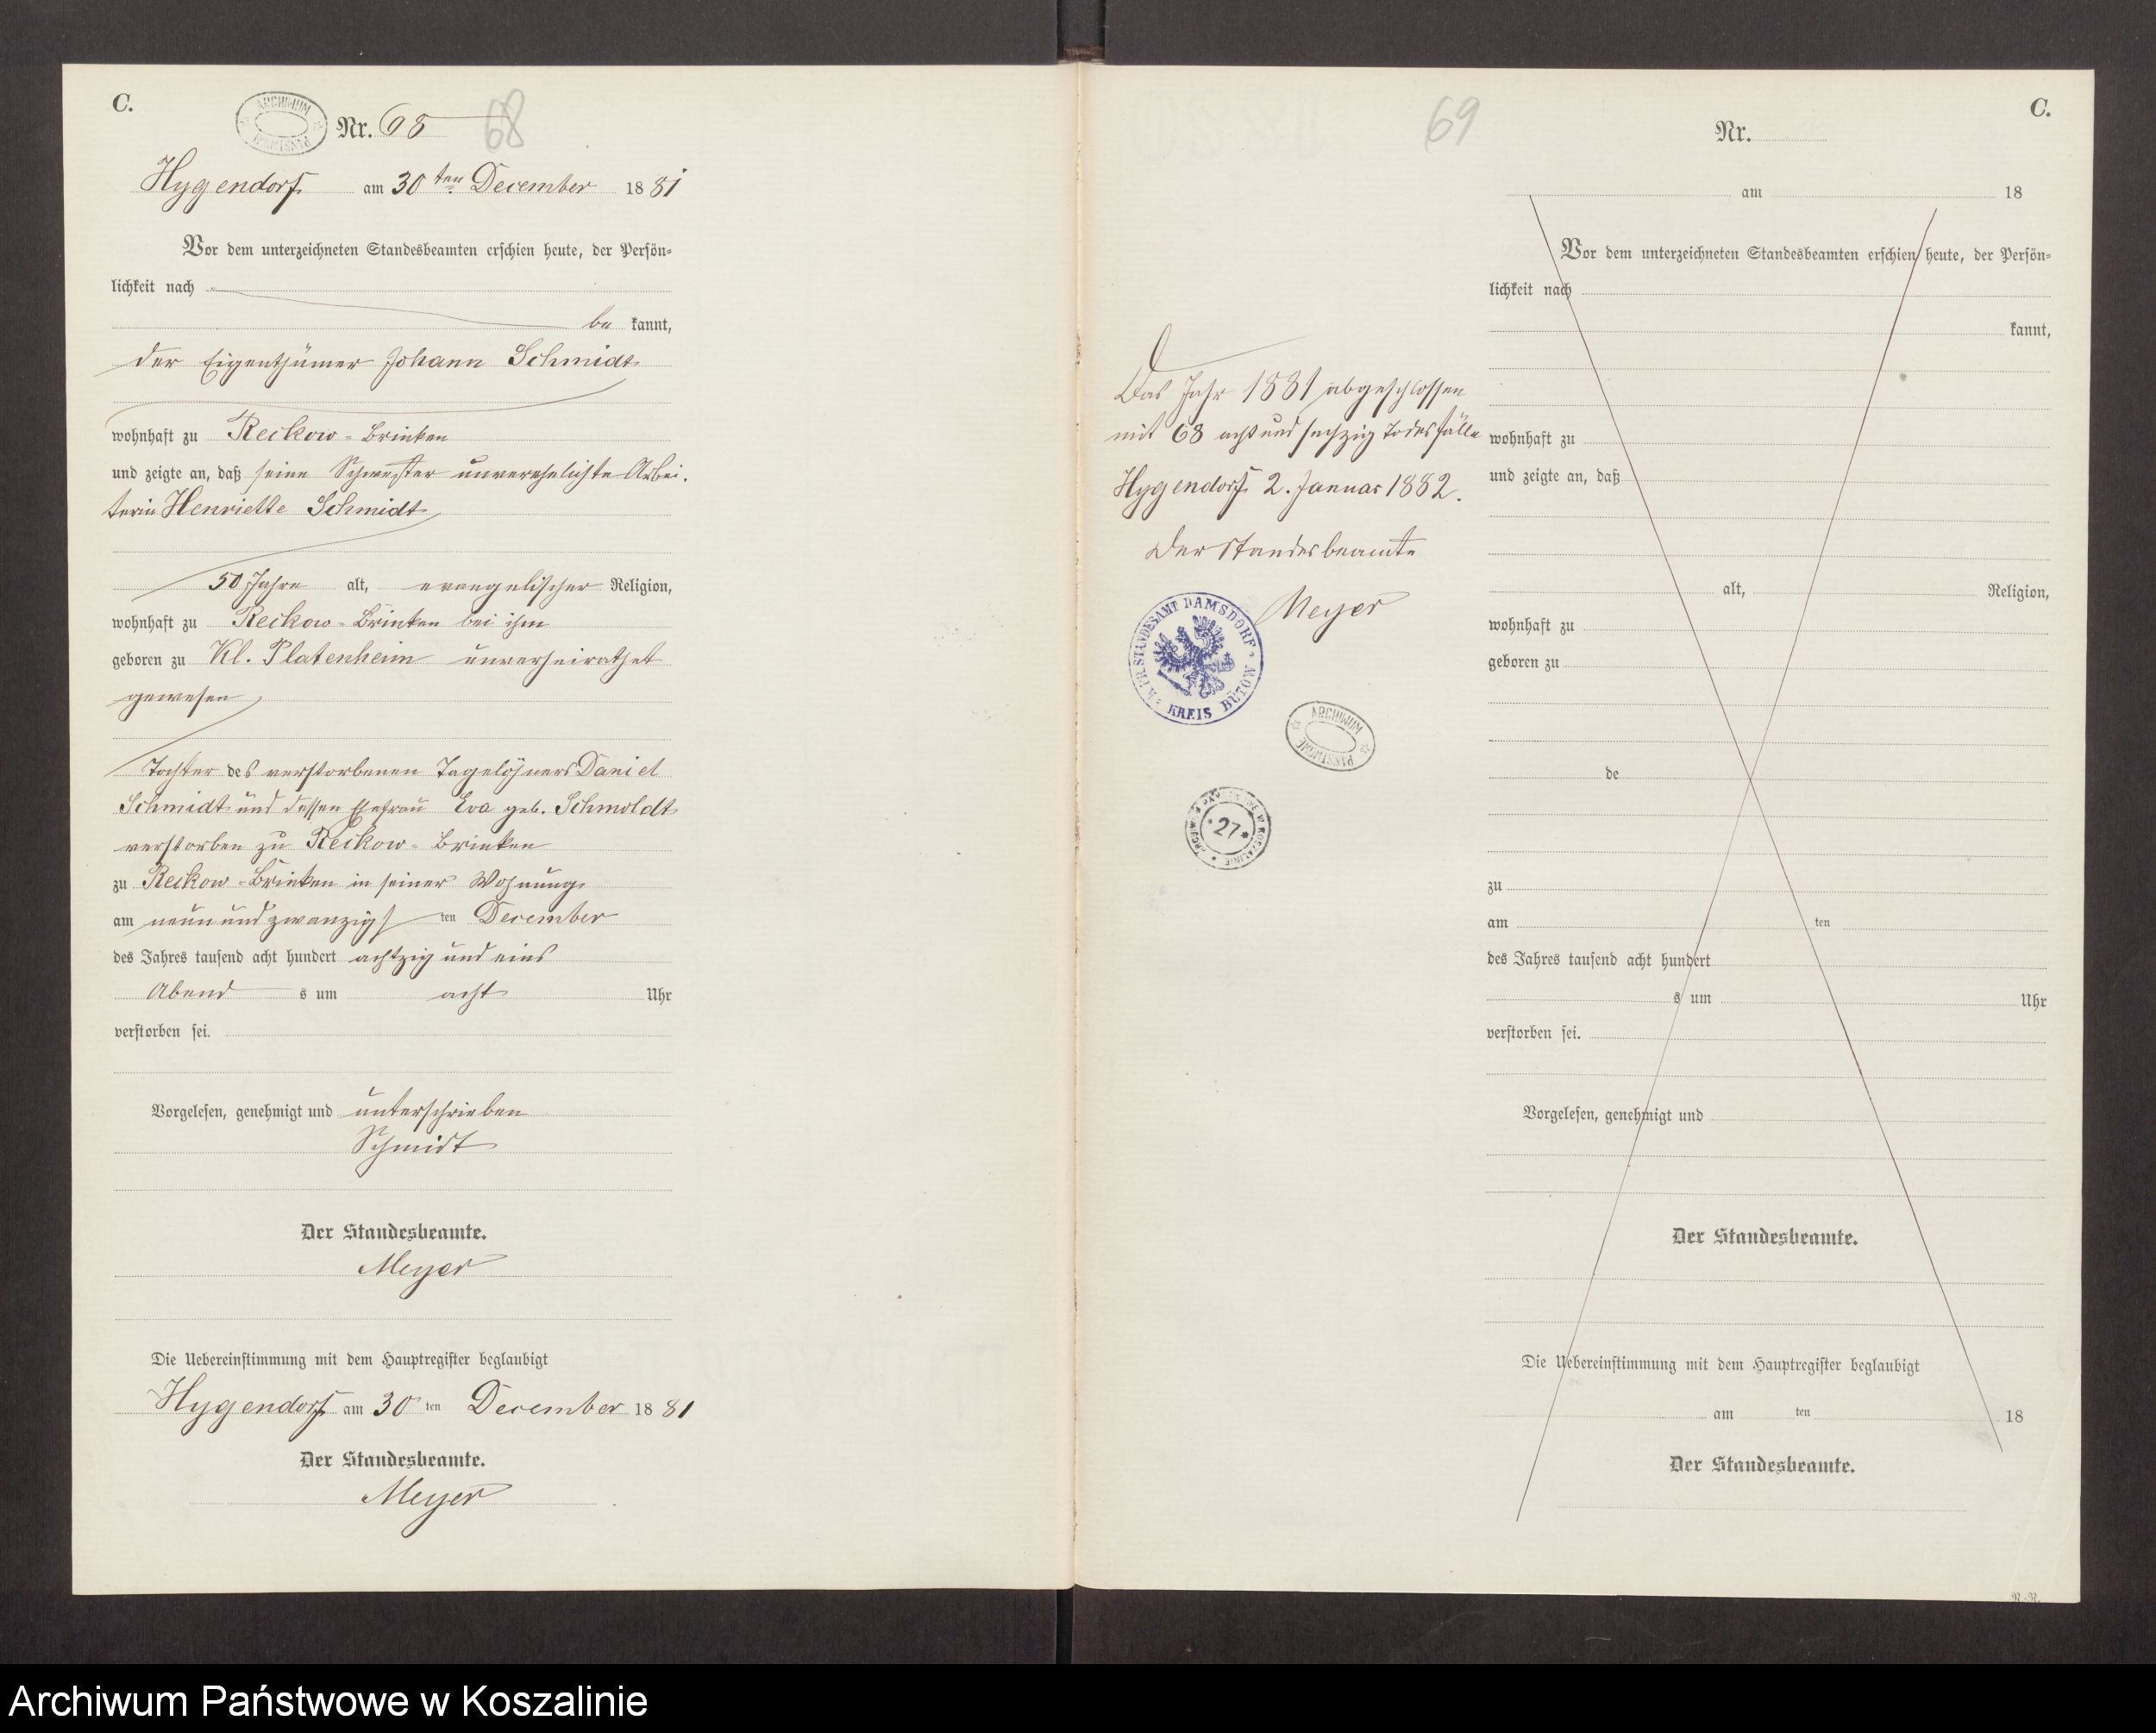 C.
ARCHIWUM PAŃSTWOWE
Nr. 68
68
Hygendorf am 30ten December 1881
Vor dem unterzeichneten Standesbeamten erschien heute, der Persön-
lichkeit nach
be kannt,
der Eigenthümer Johann Schmidt
wohnhaft zu Reckow-Brinken
und zeigte an, daß seine Schwester unverehelichte Arbei-
terin Henriette Schmidt
50 Jahre alt, evangelischer Religion,
wohnhaft zu Reckow-Brinken bei ihm
geboren zu Kl. Platenheim unverheirathet
gewesen
Tochter des verstorbenen Tagelöhners Daniel
Schmidt und dessen Ehefrau Eva geb. Schmoldt
verstorben zu Reckow-Brinken
zu Reckow-Brinken in seiner Wohnung
am neunundzwanzigs ten December
des Jahres tausend acht hundert achtzig und eins
Abend s um acht Uhr
verstorben sei.
Vorgelesen, genehmigt und unterschrieben
Schmidt
Der Standesbeamte.
Meyer
Die Uebereinstimmung mit dem Hauptregister beglaubigt
Hygendorf am 30 ten December 1881
Der Standesbeamte.
Meyer
69
Das Jahr 1881 abgeschlossen
mit 68 acht und sechzig Todesfälle
Hygendorf 2. Januar 1882.
Der Standesbeamte
Meyer
K. PR. STANDESAMT DAMSDORF
KREIS BÜTOW
ARCHIWUM PAŃSTWOWE
ARCHIWUM PAŃSTWOWE W KOSZALINIE
*27*
C.
Nr.
am 18
Vor dem unterzeichneten Standesbeamten erschien heute, der Persön-
lichkeit nach
kannt,
wohnhaft zu
und zeigte an, daß
alt, Religion,
wohnhaft zu
geboren zu
de
zu
am ten
des Jahres tausend acht hundert
s um Uhr
verstorben sei.
Vorgelesen, genehmigt und
Der Standesbeamte.
Die Uebereinstimmung mit dem Hauptregister beglaubigt
am ten 18
Der Standesbeamte.
Archiwum Państwowe w Koszalinie